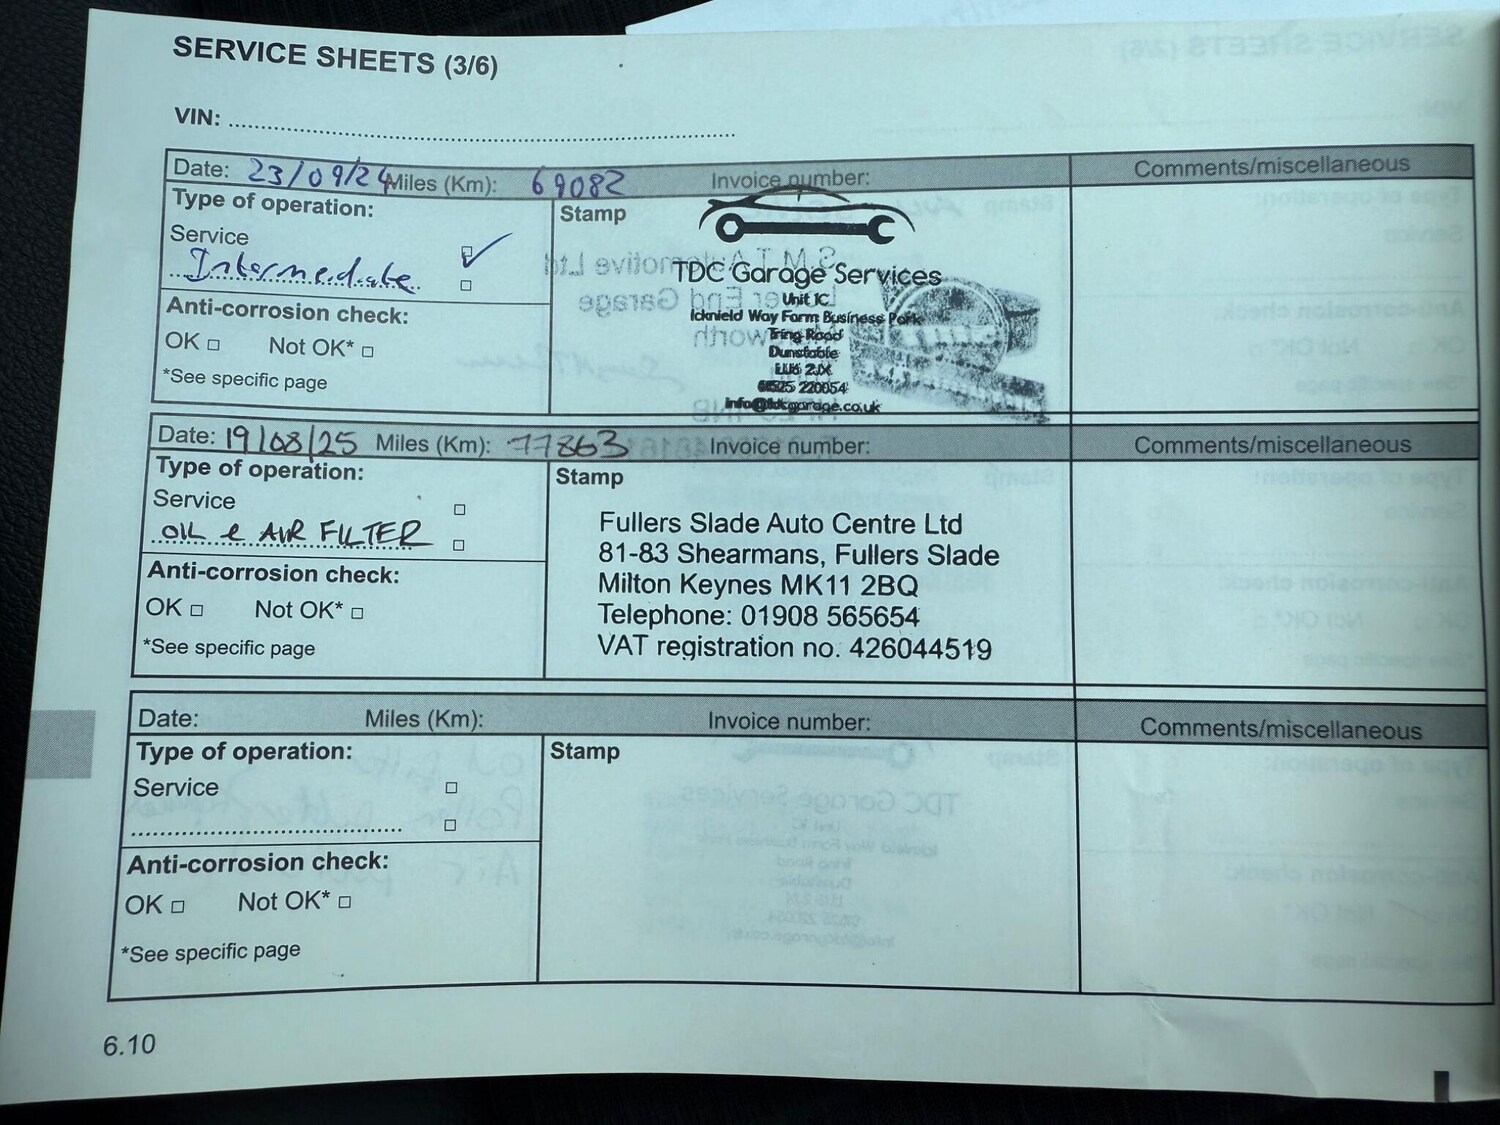 SERVICE SHEETS (3/6)
VIN:
Date: 23/09/24 Miles (Km): 69082 Invoice number: Comments/miscellaneous
Type of operation:
Service
Intermediate
Anti-corrosion check:
OK Not OK*
*See specific page
Stamp
TDC Garage Services
Unit 1C
Icknield Way Farm Business Park
Tring Road
Dunstable
LU6 2JX
01525 220054
info@tdcgarage.co.uk
Date: 19/08/25 Miles (Km): 77863 Invoice number: Comments/miscellaneous
Type of operation:
Service
OIL & AIR FILTER
Anti-corrosion check:
OK Not OK*
*See specific page
Stamp
Fullers Slade Auto Centre Ltd
81-83 Shearmans, Fullers Slade
Milton Keynes MK11 2BQ
Telephone: 01908 565654
VAT registration no. 426044519
Date: Miles (Km): Invoice number: Comments/miscellaneous
Type of operation:
Service
Anti-corrosion check:
OK Not OK*
*See specific page
Stamp
6.10